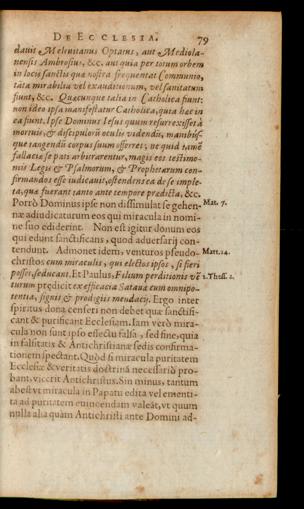 DE ECCLESIA. 79
dauit Meleuitanus Optatus, aut Mediola-
nensis Ambrosius, &c. aut quia per totum orbem
in locis sanctis quæ nostra frequentat Communio,
tāta mirabilia vel exauditionum, vel sanitatum
fiunt, &c. Quæcunque talia in Catholica fiunt:
non ideo ipsa manifestatur Catholica, quia hæc in
ea fiunt. Ipse Dominus Iesus quum resurrexisset à
mortuis, & discipulorū oculis videndū, manibus-
que tangendū corpus suum offerret, ne quid tamē
fallaciæ se pati arbitrarentur, magis eos testimo-
niis Legis & Psalmorum, & Prophetarum con-
firmandos esse iudicauit, ostendens ea de se imple-
ta, quæ fuerant tanto ante tempore prædicta, &c.
Porrò Dominus ipse non dissimulat se gehen- Mat. 7.
næ adiudicaturum eos qui miracula in nomi-
ne suo ediderint. Non est igitur donum eos
qui edunt sanctificans, quod aduersarij con-
tendunt. Admonet idem, venturos pseudo- Matt. 24.
christos cum miraculis, qui electos ipsos, si fieri
posset, seducant. Et Paulus, Filium perditionis vē- 2. Thess. 2.
turum prædicit ex efficacia Satanæ cum omni po-
tentia, signis & prodigiis mendacij. Ergo inter
spiritus dona censeri non debet quæ sanctifi-
cant & purificant Ecclesiam. Iam verò mira-
cula non sunt ipso effectu falsa, sed fine, quia
in falsitatis & Antichristianæ sedis confirma-
tionem spectant. Quòd si miracula puritatem
Ecclesiæ & veritatis doctrinā necessariò pro-
bant, vicerit Antichristus. Sin minus, tantum
abest vt miracula in Papatu edita vel ementi-
ta ad puritatem euincendam valeāt, vt quum
nulla alia quàm Antichristi ante Domini ad-